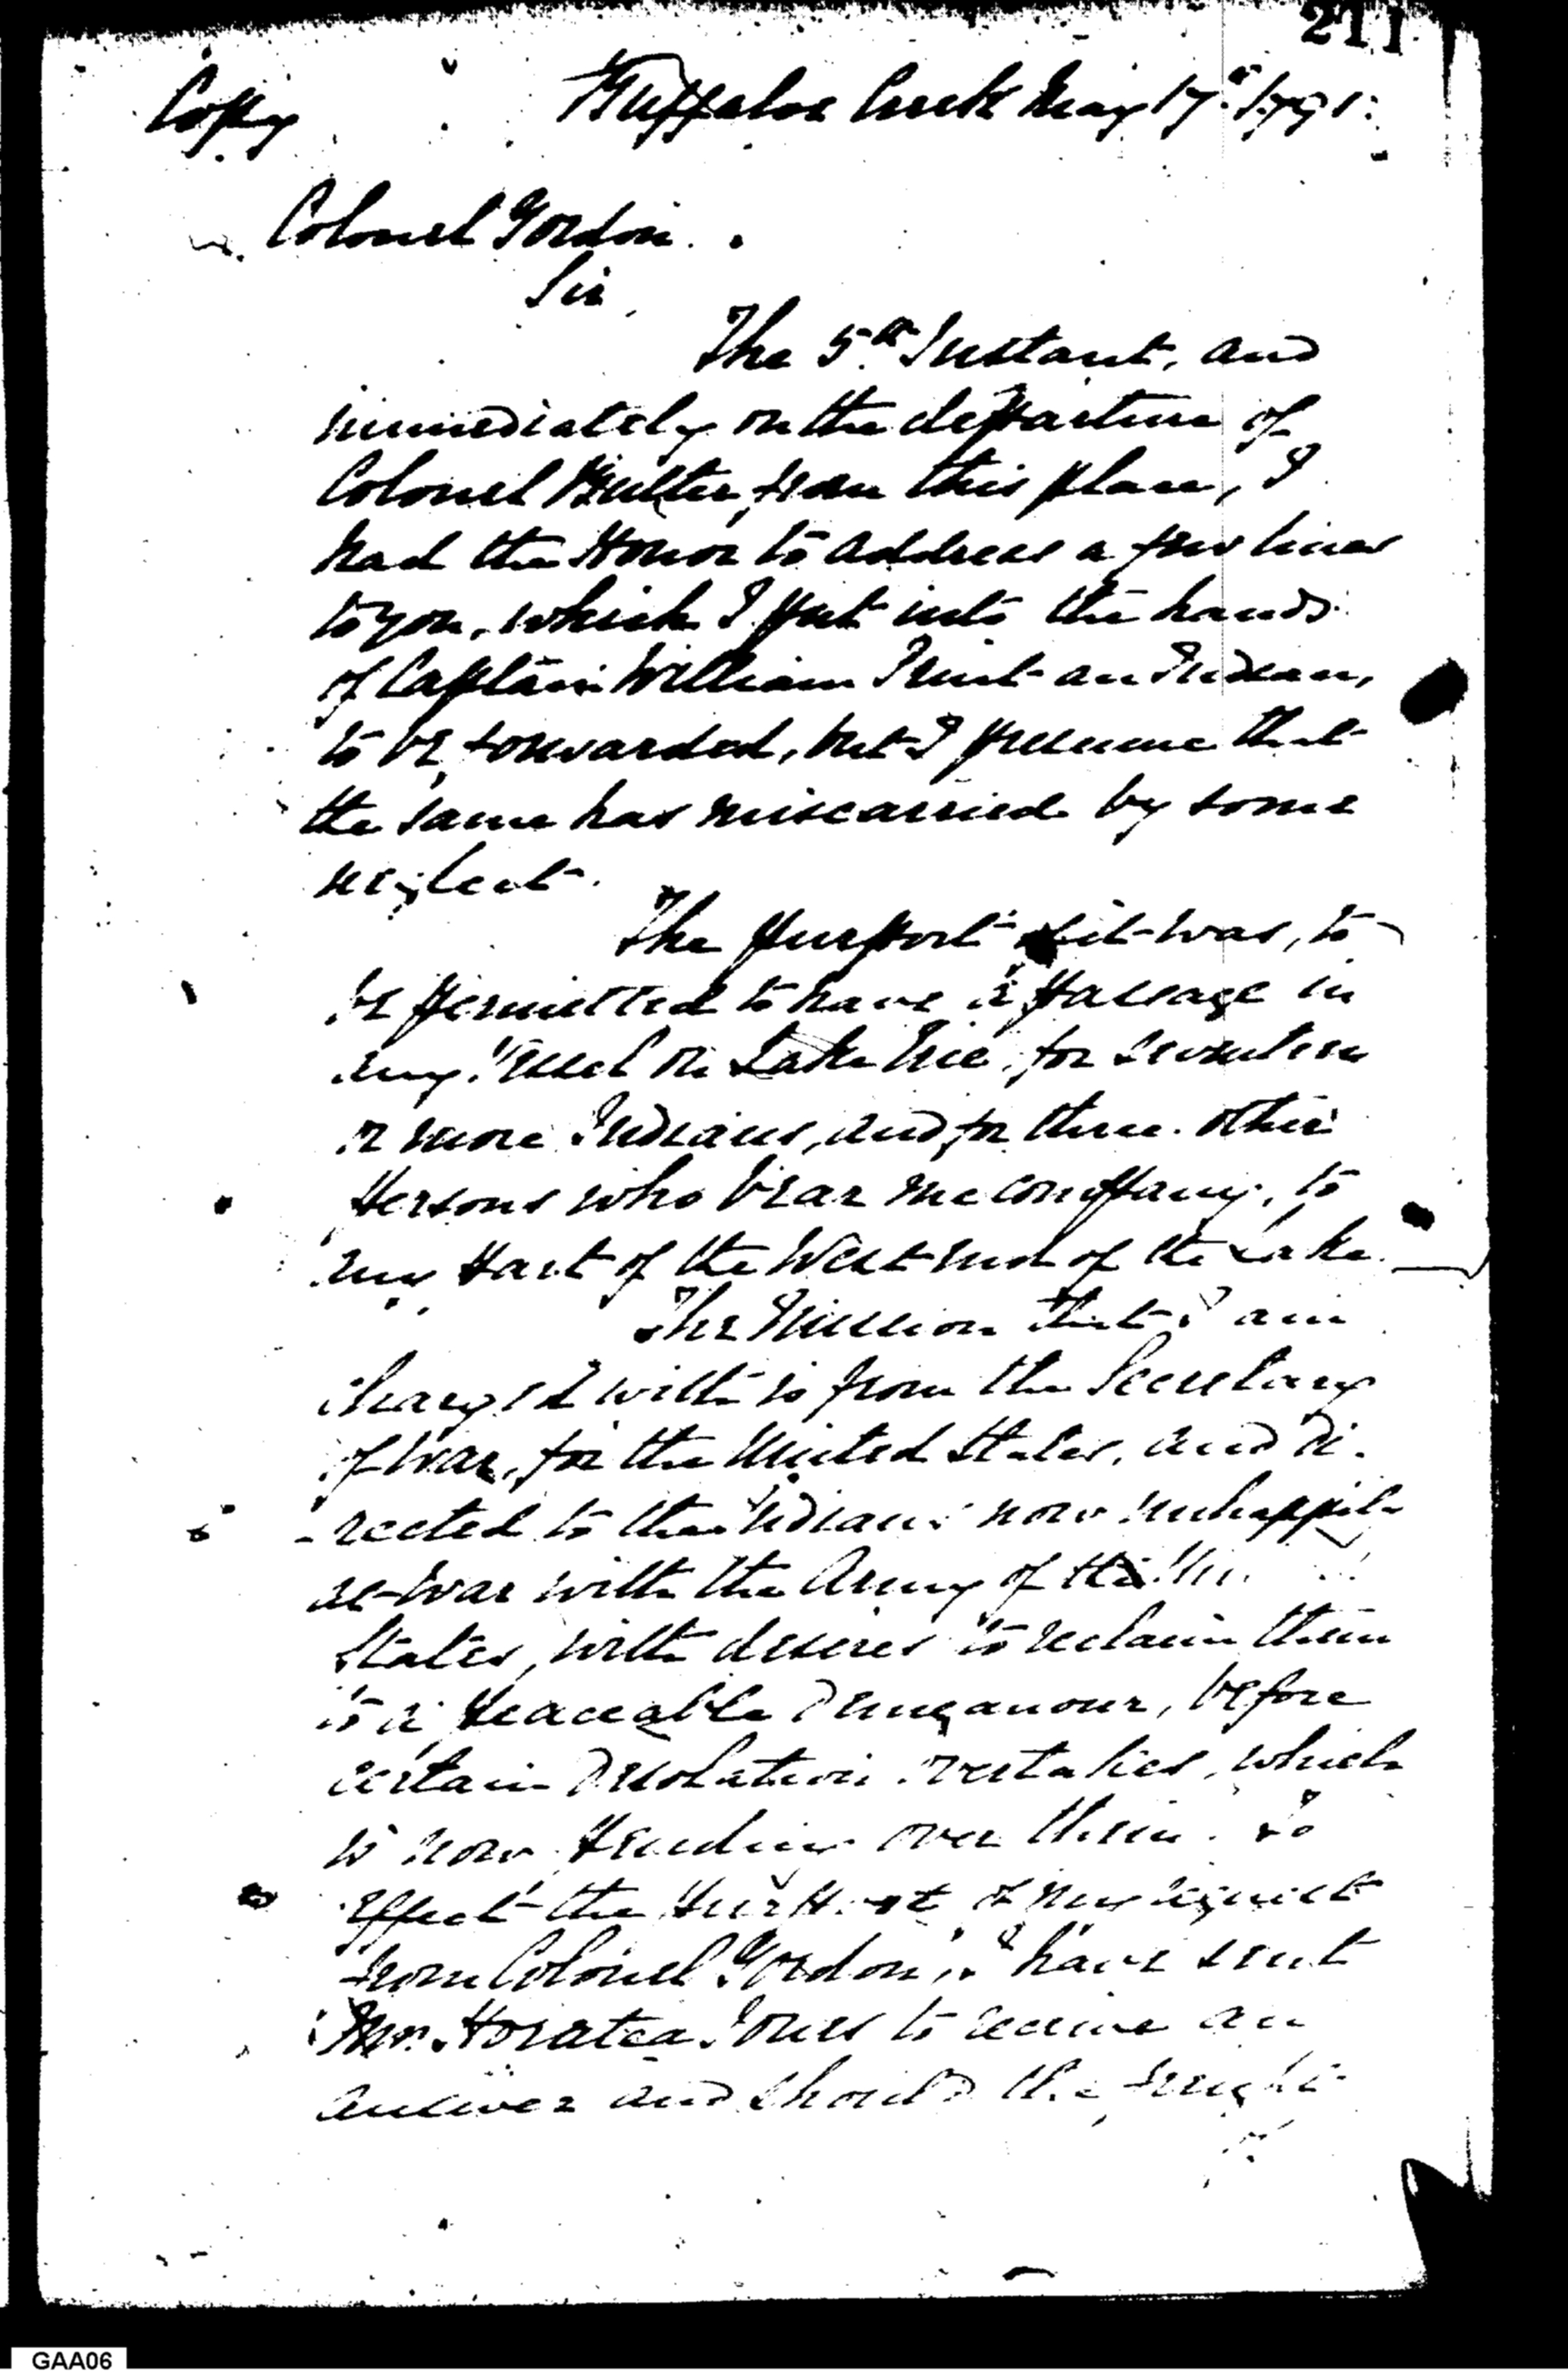 211
Copy Buffaloe Creek May 17th 1791.
Colonel Gordon.
Sir,
The 5th Instant, and
immediately on the departure of
Colonel Butler from this place, I
had the Honor to address a few lines
to you, which I put into the hands
of Captain William Print an Indian,
to be forwarded, but I presume that
the same has miscarried by some
neglect.
The purport of it was, to
be permitted to have a passage in
any Vessel on Lake Erie, for seventeen
or more Indians, and for three other
persons who bear me company, to
any part of the West end of the Lake.
The Mission that I am
charged with is from the Secretary
of War, for the United States, and di-
-rected to the Indians now unhappily
at War with the Army of the
States, with desires to reclaim them
to a peaceable Demeanour, before
certain desolation overtakes, which
is now pending over them. To
effect the purport of my request
from Colonel Gordon, I have sent
Mr. Horatea Jones to receive an
answer and should the
GAA06